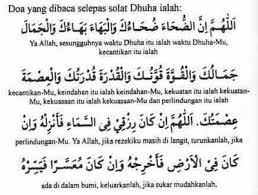 Doa yang dibaca selepas solat Dhuha ialah:
اَللّٰهُمَّ اِنَّ الضُّحَآءَ ضُحَاءُكَ وَالْبَهَاءَ بَهَاءُكَ وَالْجَمَالَ
Ya Allah, sesungguhnya waktu Dhuha itu ialah waktu Dhuha-Mu,
kecantikan itu ialah
جَمَالُكَ وَالْقُوَّةَ قُوَّتُكَ وَالْقُدْرَةَ قُدْرَتُكَ وَالْعِصْمَةَ
kecantikan-Mu, keindahan itu ialah keindahan-Mu, kekuatan itu ialah
kekuatan-Mu, kekuasaan itu ialah kekuasaan-Mu dan perlindungan itu ialah
عِصْمَتُكَ. اَللّٰهُمَّ اِنْ كَانَ رِزْقِيْ فِي السَّمَآءِ فَأَنْزِلْهُ وَاِنْ
perlindungan-Mu. Ya Allah, jika rezekiku masih di langit, turunkanlah, jika
كَانَ فِي الْاَرْضِ فَأَخْرِجْهُ وَاِنْ كَانَ مُعَسَّرًا فَيَسِّرْهُ
ada di dalam bumi, keluarkanlah, jika sukar mudahkanlah,